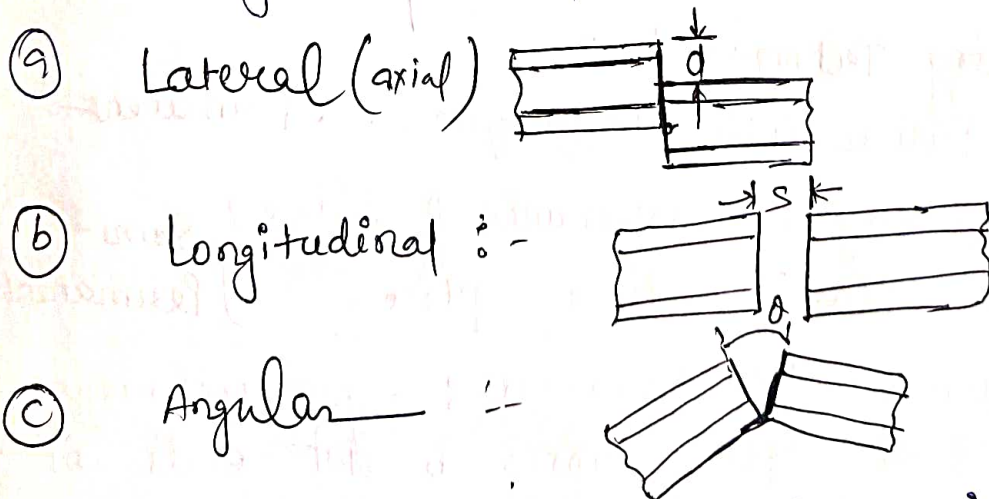 ⓐ Lateral (axial) d
S
ⓑ Longitudinal :-
θ
ⓒ Angular :-